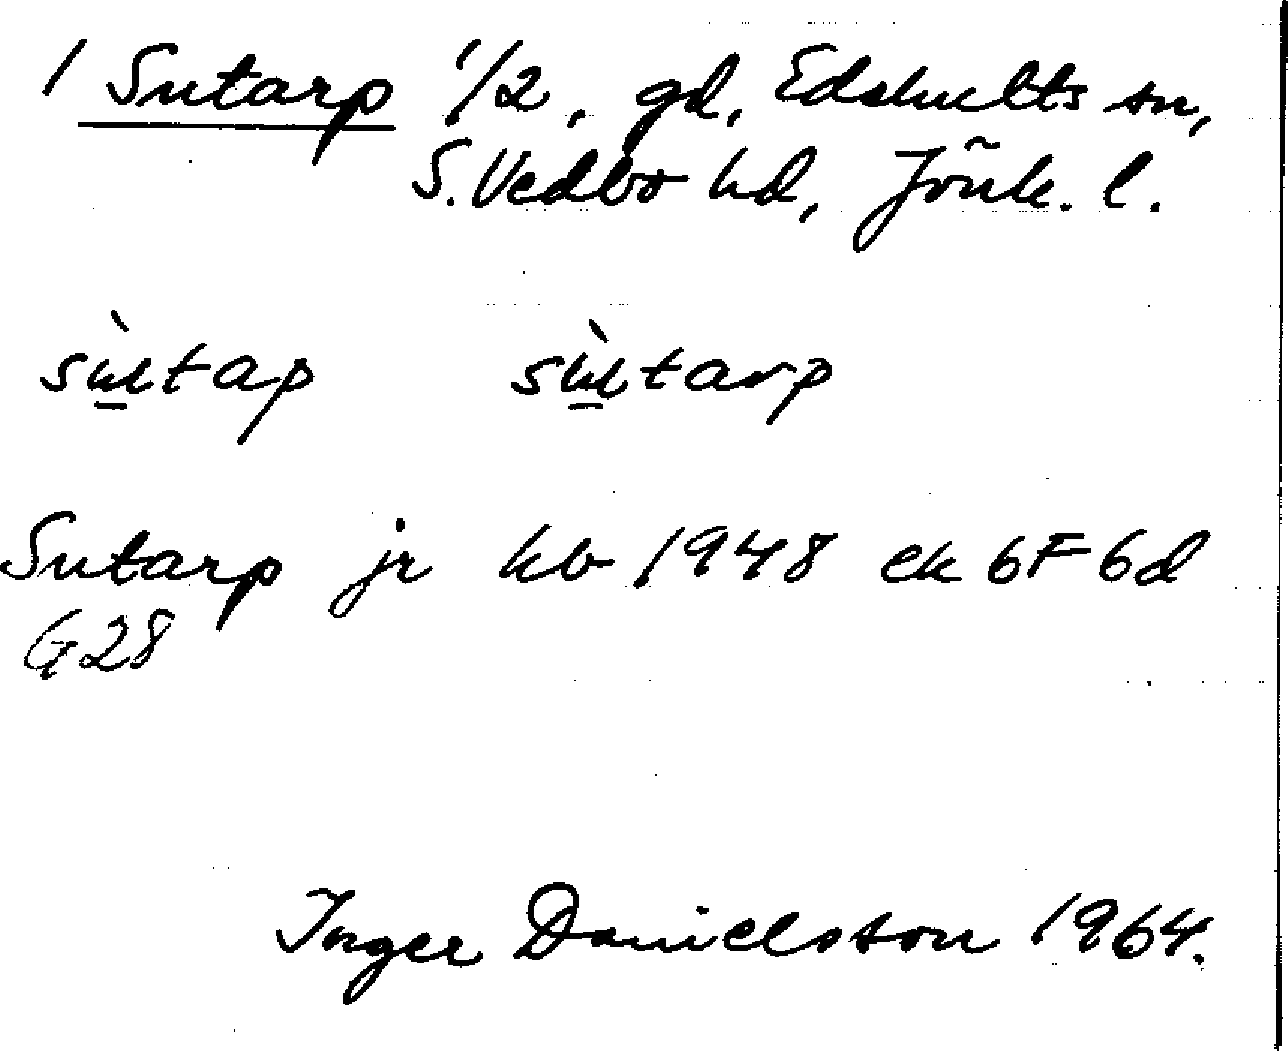 1 Sutarp 1/2, gd, Edshults sn,
S. Vedbo hd, Jönk. l.
sùtap sùtarp
Sutarp jr kb 1948 ek 6F 6d
G28
Inger Danielsson 1964.